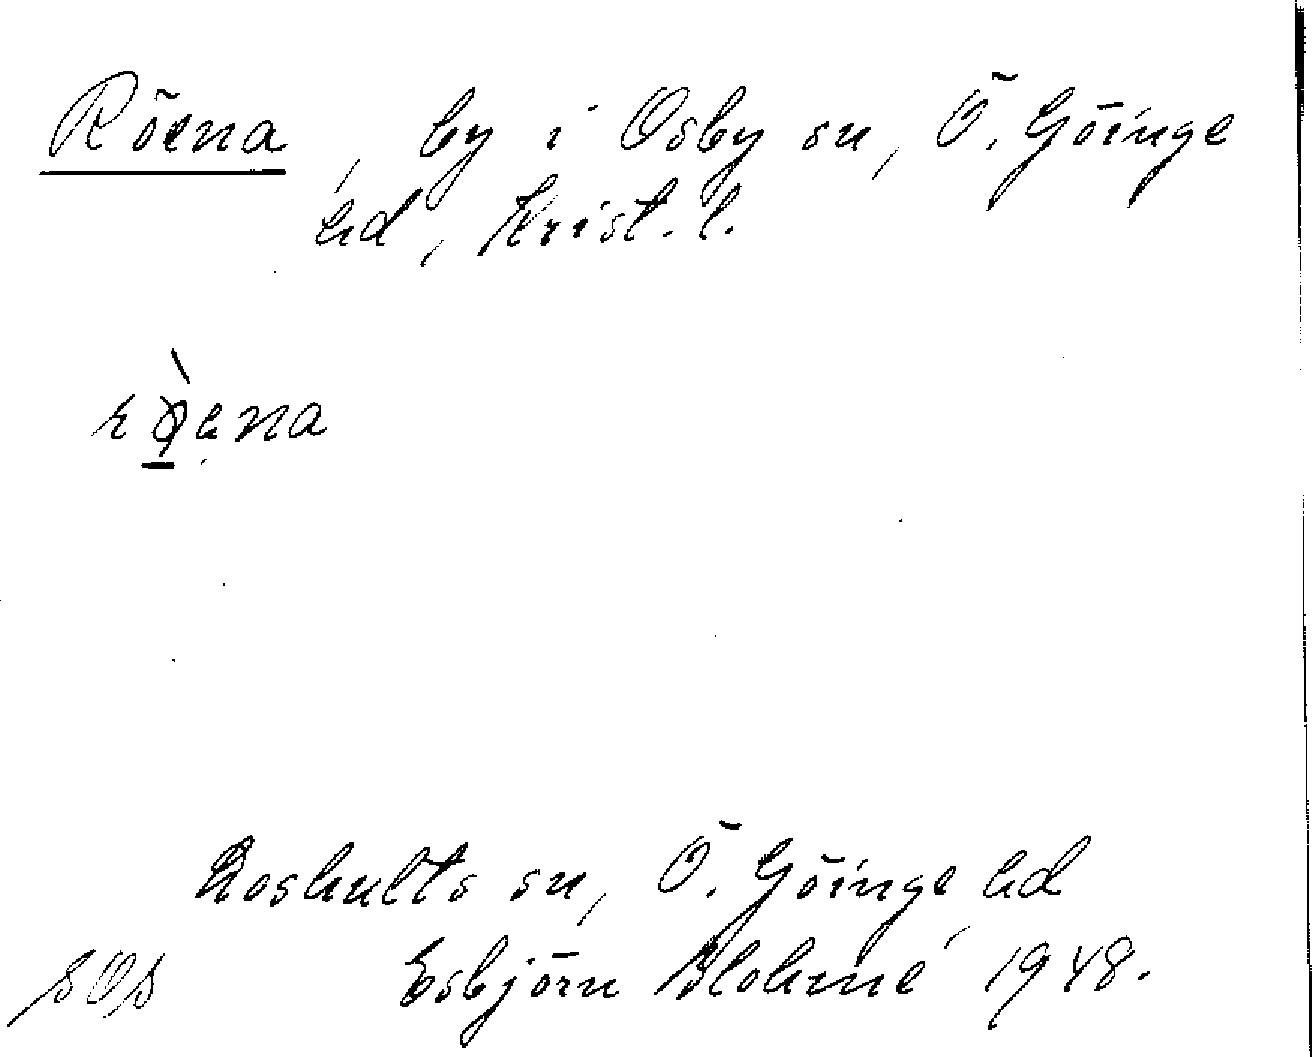 Röena, by i Osby sn, Ö. Göinge
hd, Krist. l.
rø̀ena
Loshults sn, Ö. Göinge hd
Esbjörn Blohmé 1948.